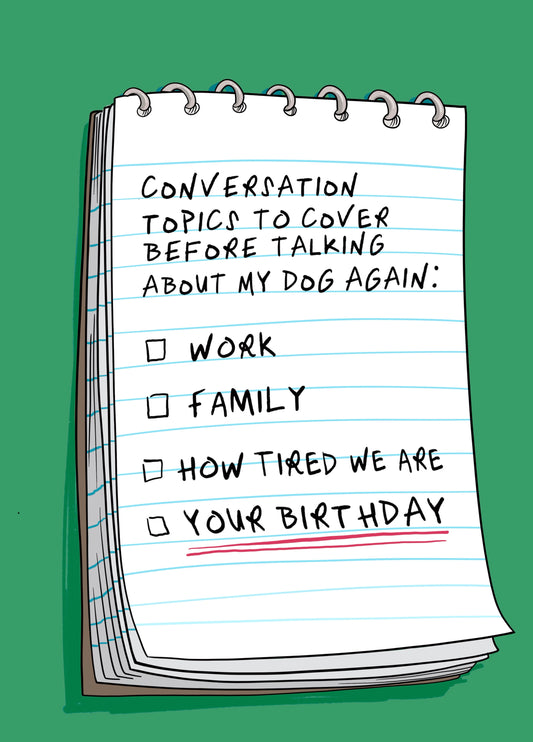 CONVERSATION
TOPICS TO COVER
BEFORE TALKING
ABOUT MY DOG AGAIN:
WORK
FAMILY
HOW TIRED WE ARE
YOUR BIRTHDAY